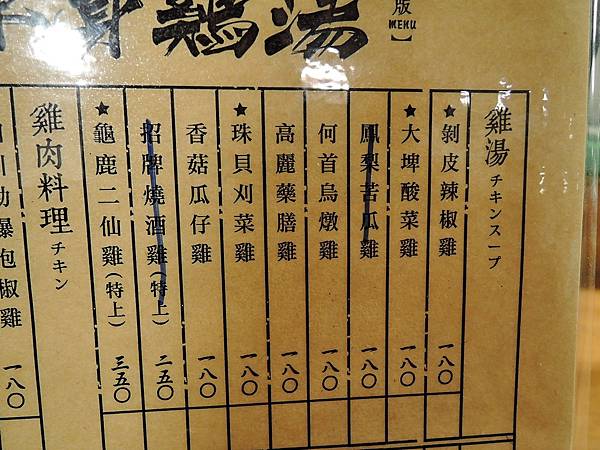 雞湯
版
MENU】
雞湯 チキンスープ
★剝皮辣椒雞 一八〇
★大埤酸菜雞 一八〇
鳳梨苦瓜雞 一八〇
何首烏燉雞 一八〇
高麗藥膳雞 一八〇
★珠貝刈菜雞 一八〇
香菇瓜仔雞 一八〇
招牌燒酒雞(特上) 二五〇
★龜鹿二仙雞(特上) 三五〇
雞肉料理 チキン
爆炮椒雞 一八〇